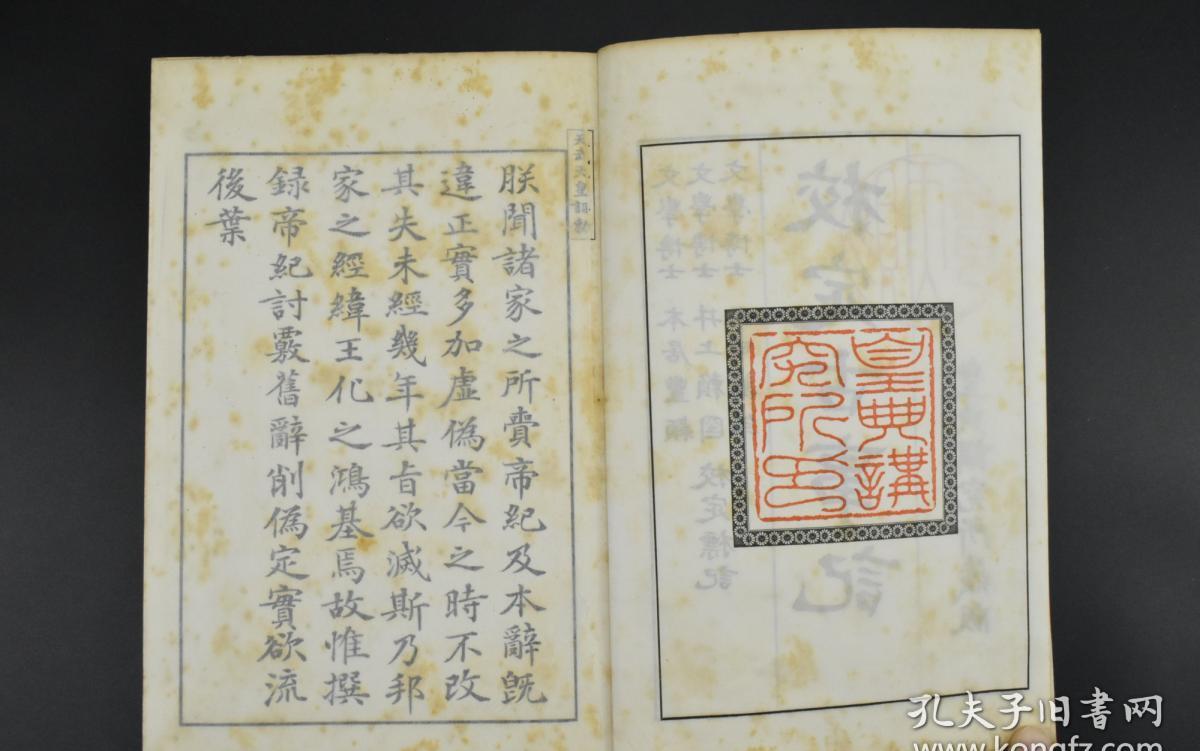 皇典講
究所印
天武天皇詔勅
朕聞諸家之所賷帝紀及本辭既
違正實多加虛偽當今之時不改
其失未經幾年其旨欲滅斯乃邦
家之經緯王化之鴻基焉故惟撰
録帝紀討覈舊辭削偽定實欲流
後葉
孔夫子旧书网
www.kongfz.com